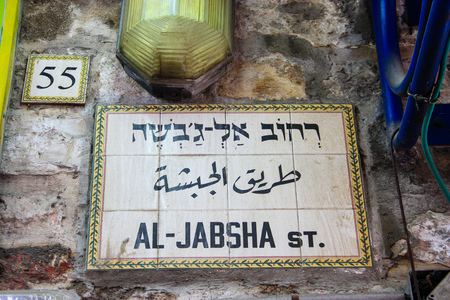 55
רְחוֹב אַל-גַ'בְּשָׁה
طريق الجبشة
AL-JABSHA ST.